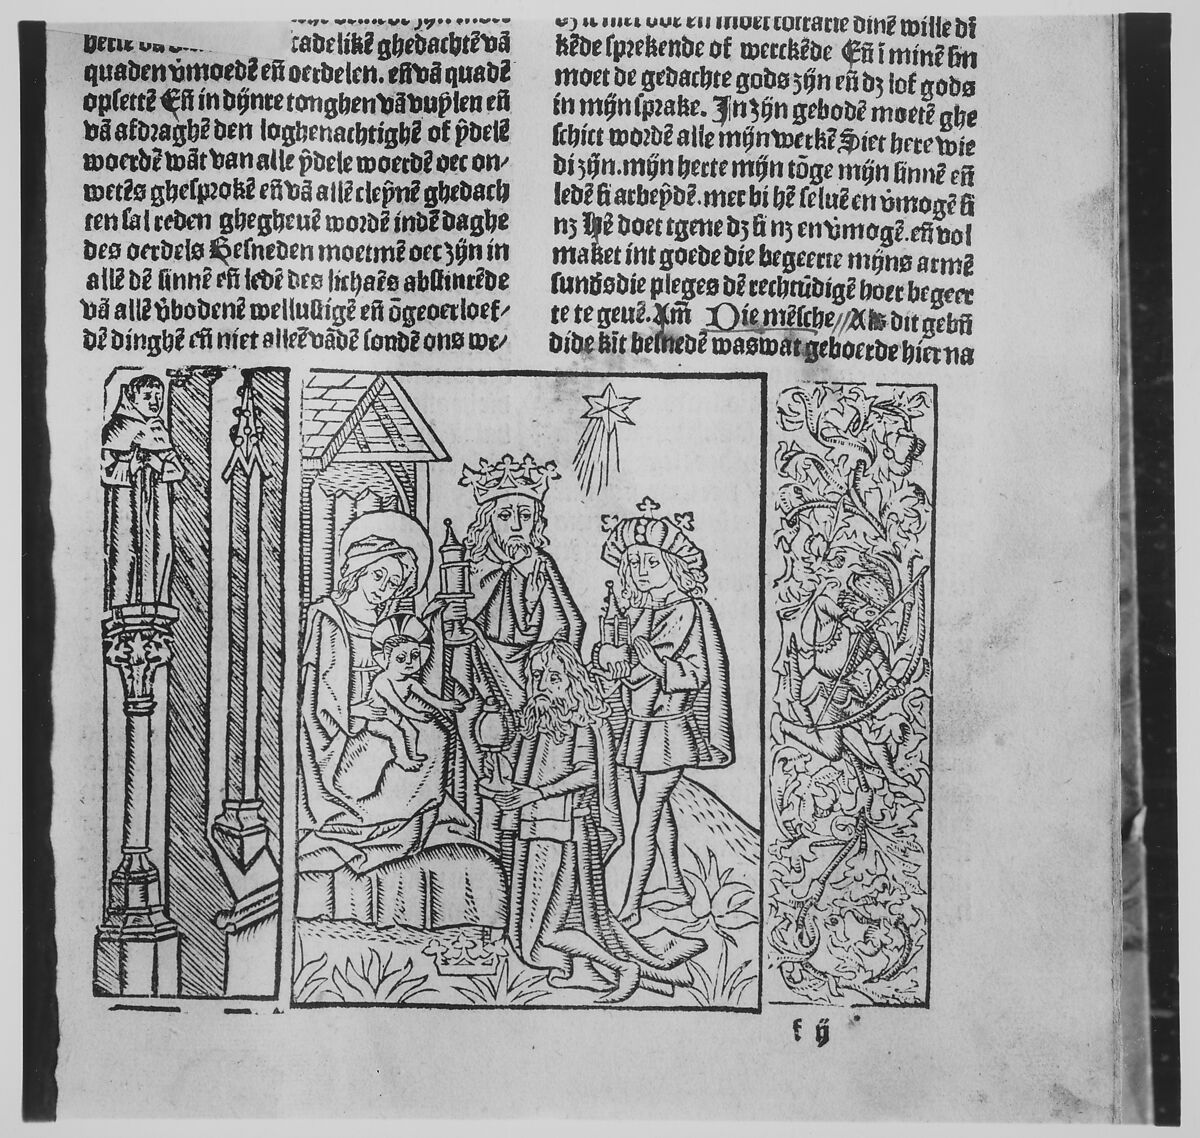 tadelikē ghedachtē vā
quaden v̄moedē en̄ oerdelen. en̄ vā quadē
opsettē En̄ in dÿnre tonghen vā vuÿlen en̄
vā afdraghē den loghenachtighē of ÿdelē
woerdē wāt van alle ÿdele woerdē oec on⸗
wetēs ghesprokē en̄ vā allē cleÿnē ghedach
ten sal reden ghegheuē wordē indē daghe
des oerdels Besneden moetmē oec zÿn in
allē dē sinnē en̄ ledē des lichaēs abstinēde
vā allē v̄bodenē wellustigē en̄ ōgeoerloef⸗
dē dinghē en̄ niet alleē vādē sondē ons we⸗
dinē wille dī
kēde sprekende of werckēde En̄ ī minē sin
moet de gedachte gods zÿn en̄ dz lof gods
in mÿn sprake. In zÿn gebodē moetē ghe
schict wordē alle mÿn werkē Siet here wie
di zÿn. mÿn herte mÿn tōge mÿn sinnē en̄
ledē si arbeÿdē. mer bi hē seluē en v̄mogē si
nz Hē doet tgene dz si nz en v̄mogē. en̄ vol
maket int goede die begeerte mÿns armē
sund̄s die pleges dē rechtūdigē hoer begeer
te te geuē. Am̄ Die mēsche // Als dit geb̄n
dide kīt besnedē was wat geboerde hier na
f ij